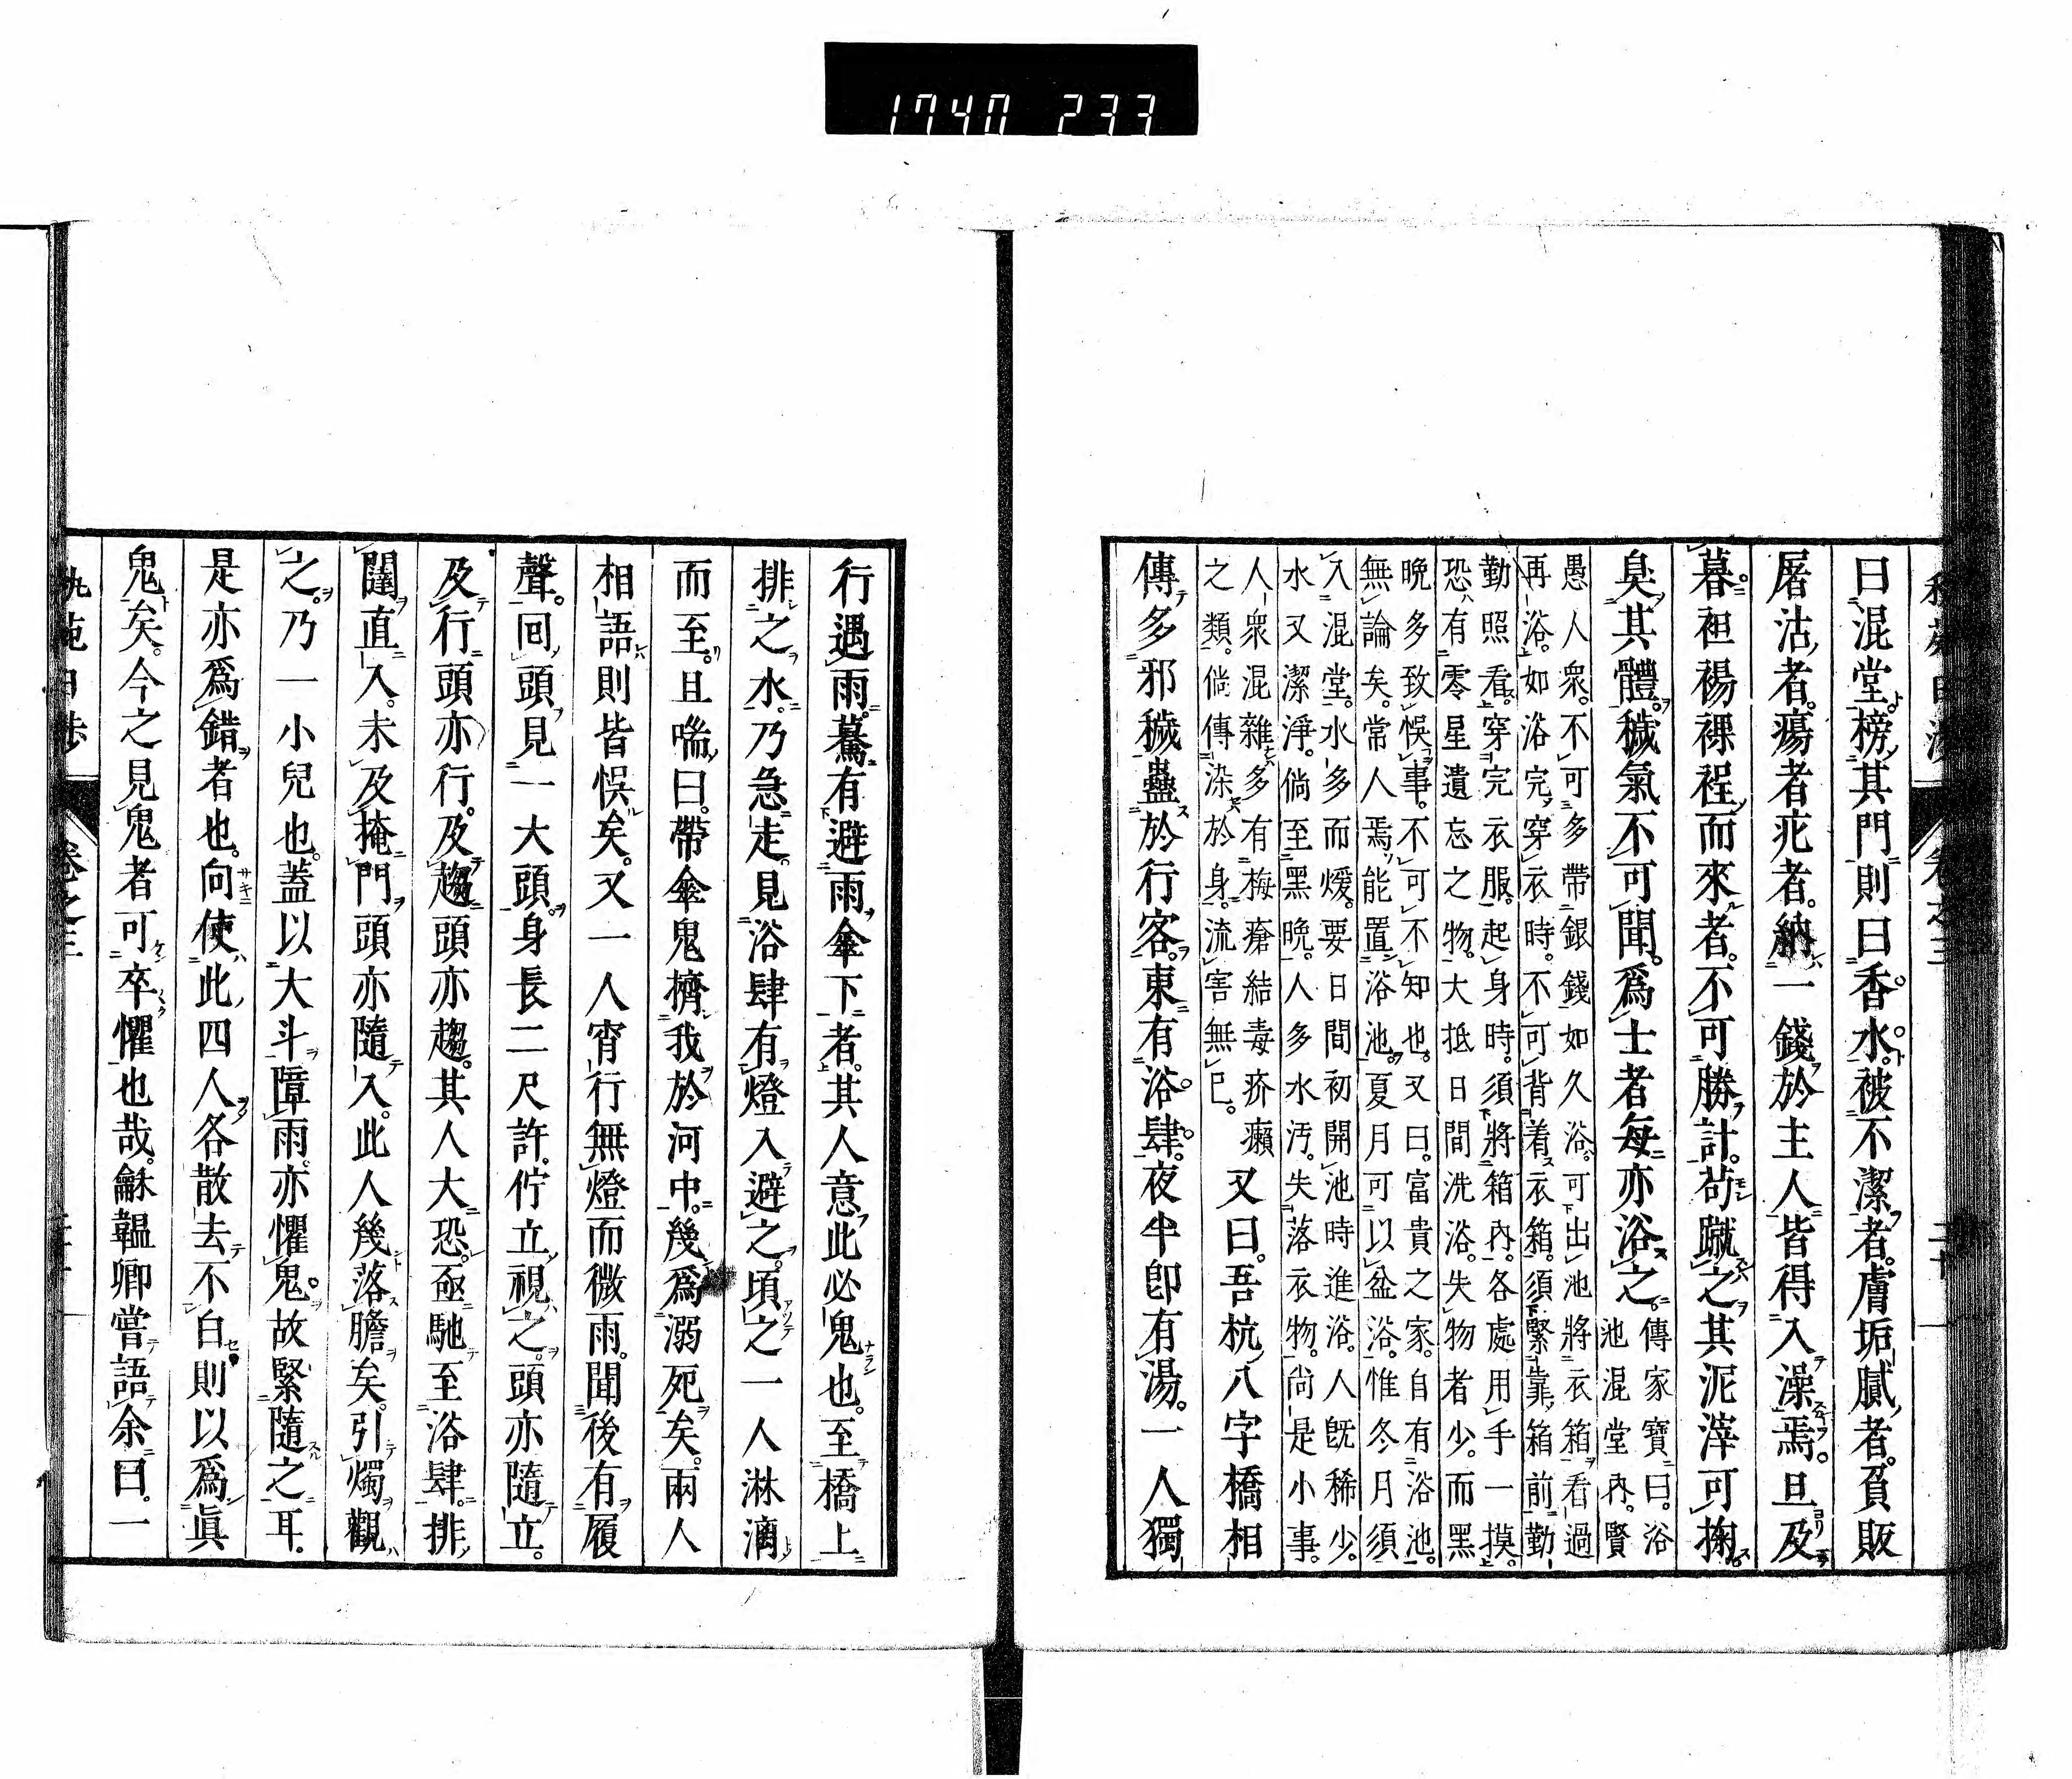 1740 233
曰混堂。榜其門則曰香水。被不潔者。膚垢膩者。貧販
屠沽者。瘍者疕者。納一錢於主人皆得入澡焉。旦及
暮。袒裼裸裎而來者。不可勝計。苟蹴之其泥滓可掬。
臭其體。穢氣不可聞。爲士者每亦浴之。
傳家寶曰。浴
池混堂內。賢
愚人衆。不可多帶銀錢如久浴。可出池將衣箱看過
再浴。如浴完穿衣時。不可背着衣箱。須緊靠箱前勤
勤照看。穿完衣服。起身時。須將箱內。各處用手一摸。
恐有零星遺忘之物。大抵日間洗浴。失物者少。而黑
晩多致悞事。不可不知也。又曰。富貴之家。自有浴池。
無論矣。常人焉能置浴池。夏月可以盆浴。惟冬月須
入混堂。水多而煖。要日間初開池時進浴。人旣稀少。
水又潔淨。倘至黑晩。人多水汚。失落衣物。尚是小事。
人衆混雜多有梅瘡結毒疥癩
之類。倘傳染於身。流害無已。
又曰。吾杭八字橋相
傳多邪穢蠱於行客。東有浴肆。夜半卽有湯。一人獨
行遇雨。驀有避雨傘下者。其人意此必鬼也。至橋上
排之水。乃急走。見浴肆有燈入避之。頃之一人淋漓
而至。且喘曰。帶傘鬼擠我於河中。幾爲溺死矣。兩人
相語則皆悞矣。又一人宵行無燈而微雨。聞後有履
聲。回頭見一大頭。身長二尺許。佇立視之。頭亦隨立。
及行頭亦行。及趨頭亦趨。其人大恐。亟馳至浴肆。排
闥直入。未及掩門頭亦隨入。此人幾落膽矣。引燭觀
之。乃一小兒也。蓋以大斗障雨亦懼鬼。故緊隨之耳。
是亦爲錯者也。向使此四人各散去不白則以爲眞
鬼矣。今之見鬼者可卒懼也哉。龢韞卿嘗語余曰。一